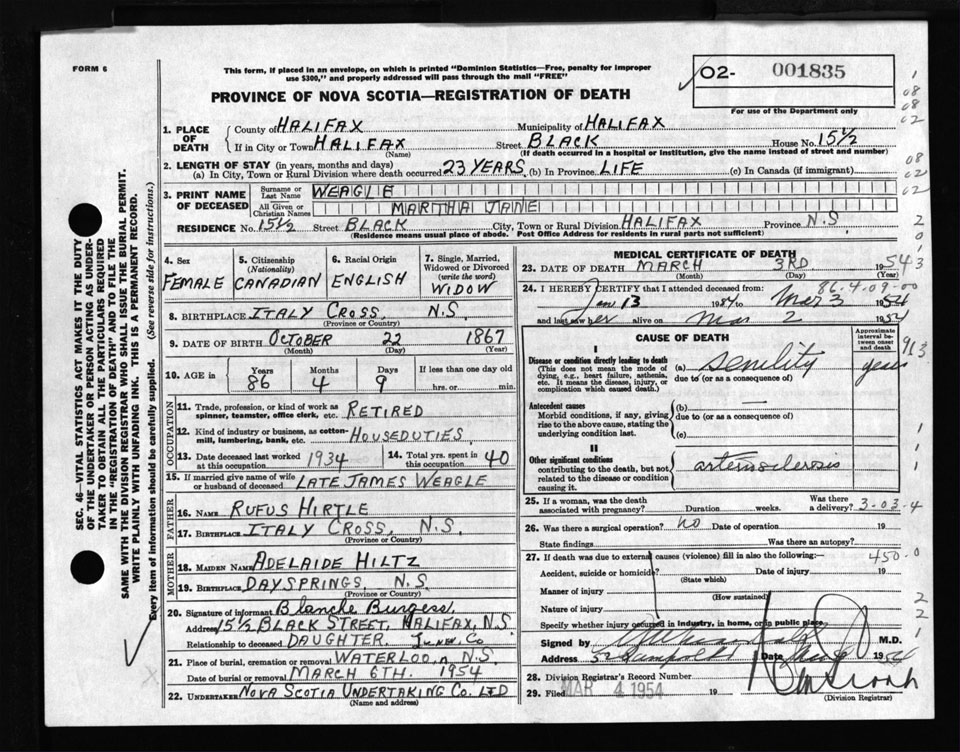 FORM 6
This form, if placed in an envelope, on which is printed "Dominion Statistics—Free, penalty for improper
use $300," and properly addressed will pass through the mail "FREE"
02- 001835
For use of the Department only
PROVINCE OF NOVA SCOTIA—REGISTRATION OF DEATH
1. PLACE OF DEATH
County of HALIFAX Municipality of HALIFAX
If in City or Town HALIFAX (Name) Street BLACK House No. 15½
(If death occurred in a hospital or institution, give the name instead of street and number)
2. LENGTH OF STAY (in years, months and days)
(a) In City, Town or Rural Division where death occurred 23 YEARS (b) In Province LIFE (c) In Canada (if immigrant)
3. PRINT NAME OF DECEASED
Surname or Last Name WEAGLE
All Given or Christian Names MARTHA JANE
RESIDENCE No. 15½ Street BLACK City, Town or Rural Division HALIFAX Province N.S
(Residence means usual place of abode. Post Office Address for residents in rural parts not sufficient)
4. Sex FEMALE
5. Citizenship (Nationality) CANADIAN
6. Racial Origin ENGLISH
7. Single, Married, Widowed or Divorced (write the word) WIDOW
8. BIRTHPLACE ITALY CROSS, N.S.
(Province or Country)
9. DATE OF BIRTH OCTOBER 22 1867
(Month) (Day) (Year)
10. AGE in Years 86 Months 4 Days 9 If less than one day old hrs. or min.
OCCUPATION
11. Trade, profession, or kind of work as spinner, teamster, office clerk, etc. RETIRED
12. Kind of industry or business, as cotton-mill, lumbering, bank, etc. HOUSEDUTIES
13. Date deceased last worked at this occupation 1934
14. Total yrs. spent in this occupation 40
15. If married give name of wife or husband of deceased LATE JAMES WEAGLE
FATHER
16. NAME RUFUS HIRTLE
17. BIRTHPLACE ITALY CROSS, N.S.
(Province or Country)
MOTHER
18. MAIDEN NAME ADELAIDE HILTZ
19. BIRTHPLACE DAYSPRINGS, N.S
(Province or Country)
20. Signature of informant Blanche Burgess,
Address 15½ BLACK STREET, HALIFAX, N.S
Relationship to deceased DAUGHTER.
21. Place of burial, cremation or removal WATERLOO, N.S.
Date of burial or removal MARCH 6TH. 1954
22. UNDERTAKER NOVA SCOTIA UNDERTAKING CO. LTD
(Name and address)
MEDICAL CERTIFICATE OF DEATH
23. DATE OF DEATH MARCH 3RD 1954
(Month) (Day) (Year)
86.4.09-00
24. I HEREBY CERTIFY that I attended deceased from:
Jan 13 1954 to Mar 3 1954
and last saw her alive on Mar 2 1954
CAUSE OF DEATH
Approximate interval between onset and death
I
Disease or condition directly leading to death
(This does not mean the mode of dying, e.g., heart failure, asthenia, etc. It means the disease, injury, or complication which caused death.)
(a) Senility
due to (or as a consequence of)
Antecedent causes
Morbid conditions, if any, giving rise to the above cause, stating the underlying condition last.
(b)
due to (or as a consequence of)
(c)
II
Other significant conditions
contributing to the death, but not related to the disease or condition causing it.
arteriosclerosis
25. If a woman, was the death associated with pregnancy? Duration weeks. Was there a delivery? 3-03-4
26. Was there a surgical operation? No Date of operation 19
State findings Was there an autopsy?
27. If death was due to external causes (violence) fill in also the following:— 450-0
Accident, suicide or homicide? Date of injury 19
(State which)
Manner of injury
(How sustained)
Nature of injury
Specify whether injury occurred in industry, in home, or in public place
Signed by M.D.
Address Date 1954
28. Division Registrar's Record Number
29. Filed MAR 4 1954 19
(Division Registrar)
SEC. 46—VITAL STATISTICS ACT MAKES IT THE DUTY
OF THE UNDERTAKER OR PERSON ACTING AS UNDER-
TAKER TO OBTAIN ALL THE PARTICULARS REQUIRED
IN THE "REGISTRATION OF DEATH" AND TO FILE THE
SAME WITH THE DIVISION REGISTRAR WHO SHALL ISSUE THE BURIAL PERMIT.
WRITE PLAINLY WITH UNFADING INK. THIS IS A PERMANENT RECORD.
Every item of information should be carefully supplied. (See reverse side for instructions.)